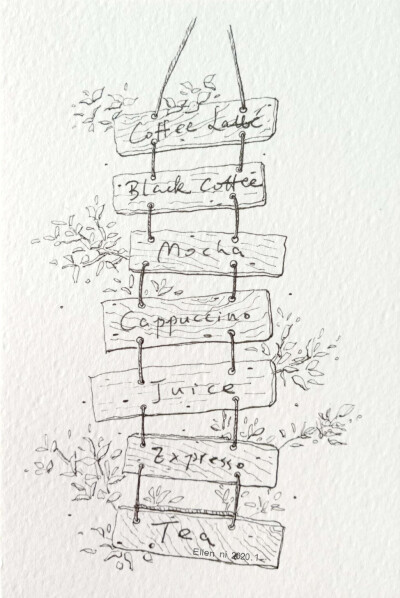 Coffee Latté
Black Coffee
Mocha
Cappuccino
Juice
Expresso
Tea
Ellen ni 2020.1